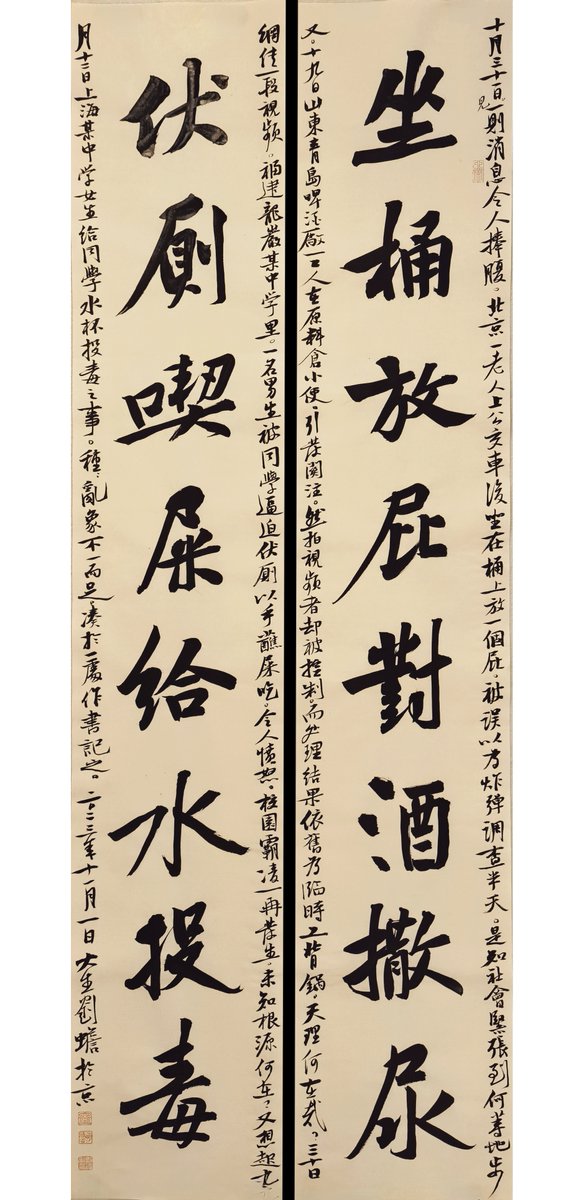 十月三十一日見一則消息令人捧腹。北京一老人上公交車後坐在桶上放一個屁,被误以为炸弹調查半天。是知社會緊張到何等地步
坐桶放屁對酒撒尿
又,十九日山東青島啤酒廠一工人在原料倉小便,引发関注。然拍視頻者却被控制,而处理结果依舊为临時工背鍋,天理何在哉,三十日
網傳一段視頻。福建龍巖某中学里,一名男生被同學逼迫伏厠以手蘸屎吃,令人憤怒。校園霸凌一再发生,未知根源何在,又想起九
伏厠喫屎給水投毒
月十二日上海某中学女生给同學水杯投毒之事。種々亂象不一而足,湊於一處作書記之。二〇二三年十一月一日 大生劉蟾於京